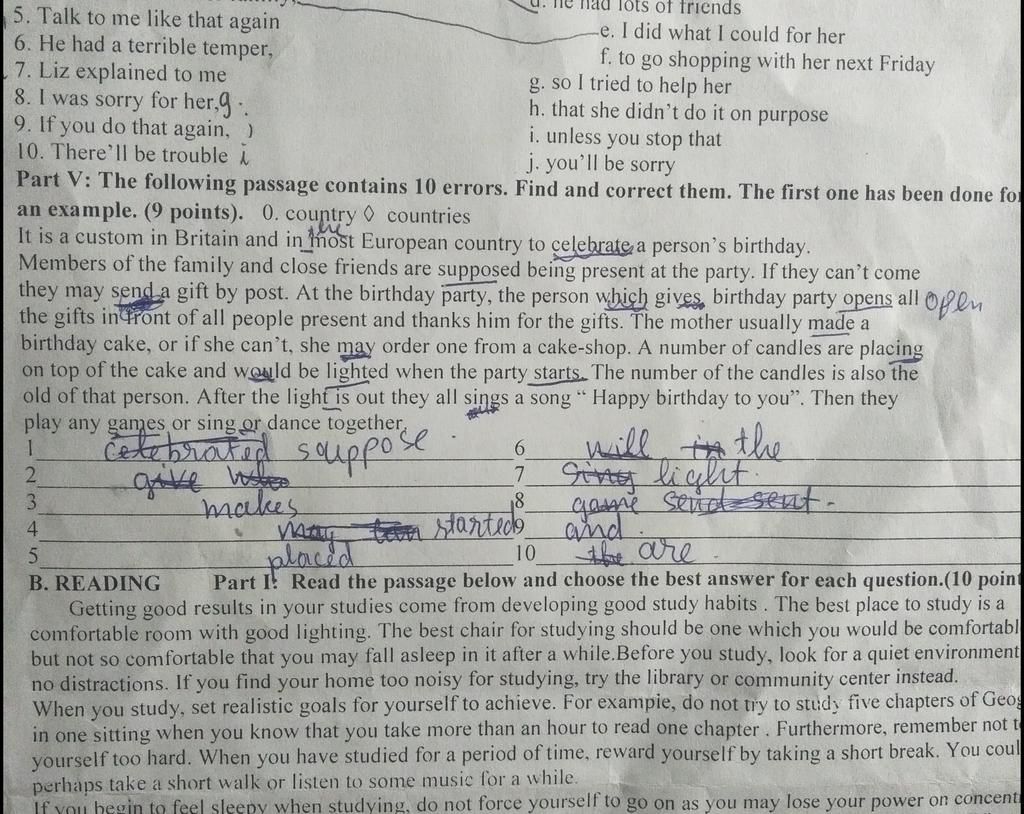 5. Talk to me like that again
6. He had a terrible temper,
7. Liz explained to me
8. I was sorry for her, g.
9. If you do that again, )
10. There'll be trouble i
d. he had lots of friends
e. I did what I could for her
f. to go shopping with her next Friday
g. so I tried to help her
h. that she didn't do it on purpose
i. unless you stop that
j. you'll be sorry
Part V: The following passage contains 10 errors. Find and correct them. The first one has been done for
an example. (9 points). 0. country ◊ countries
the
It is a custom in Britain and in most European country to celebrate a person's birthday.
Members of the family and close friends are supposed being present at the party. If they can't come
they may send a gift by post. At the birthday party, the person which gives birthday party opens all open
the gifts in front of all people present and thanks him for the gifts. The mother usually made a
birthday cake, or if she can't, she may order one from a cake-shop. A number of candles are placing
on top of the cake and would be lighted when the party starts. The number of the candles is also the
old of that person. After the light is out they all sings a song “ Happy birthday to you”. Then they
play any games or sing or dance together.
1 celebrated souppose
2 give who
3 makes
4 may started
5 placed
6 will in the
7 sing light.
8 game send sent.
9 and.
10 the are.
B. READING Part I: Read the passage below and choose the best answer for each question.(10 point
Getting good results in your studies come from developing good study habits . The best place to study is a
comfortable room with good lighting. The best chair for studying should be one which you would be comfortabl
but not so comfortable that you may fall asleep in it after a while.Before you study, look for a quiet environment
no distractions. If you find your home too noisy for studying, try the library or community center instead.
When you study, set realistic goals for yourself to achieve. For example, do not try to study five chapters of Geog
in one sitting when you know that you take more than an hour to read one chapter . Furthermore, remember not t
yourself too hard. When you have studied for a period of time, reward yourself by taking a short break. You coul
perhaps take a short walk or listen to some music for a while.
If you begin to feel sleepy when studying, do not force yourself to go on as you may lose your power on concent